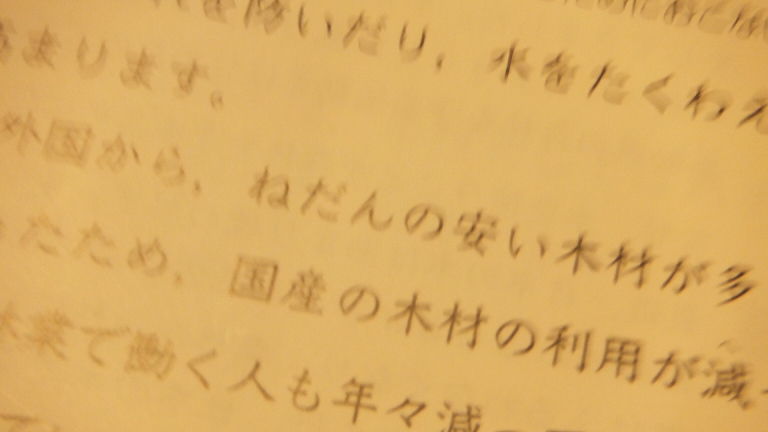 を防いだり，水をたくわえ
まります。
外国から，ねだんの安い木材が多
たため，国産の木材の利用が減
業で働く人も年々減っ